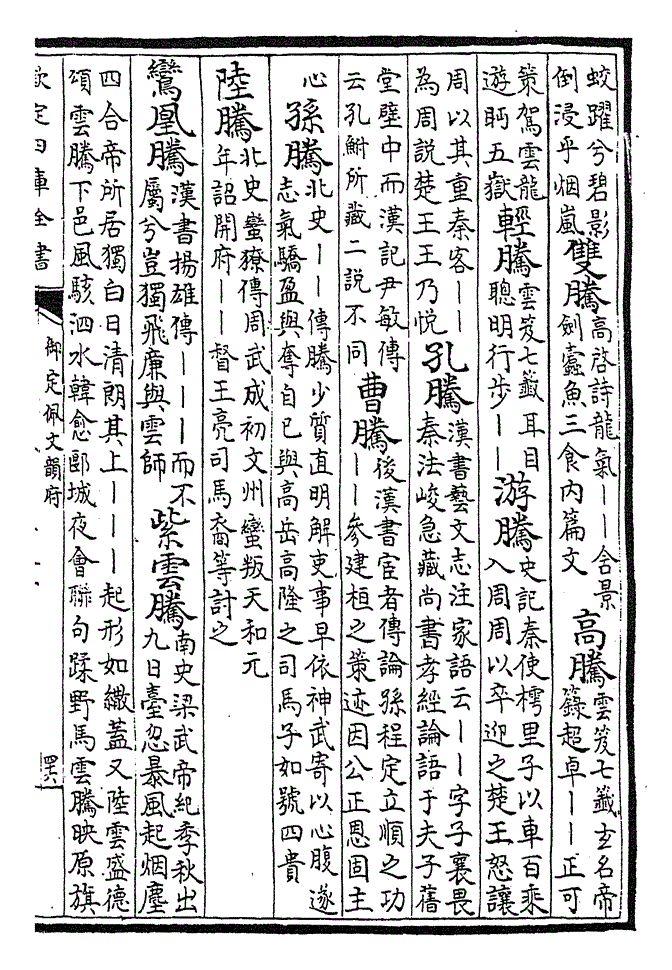 蛟躍兮碧影
倒浸乎烟嵐
雙騰
高啓詩龍氣——含景
劍蠧魚三食内篇文
高騰
雲笈七籤玄名帝
籙超卓——正可
策駕雲龍
遊眄五嶽
輕騰
雲笈七籤耳目
聰明行步——
游騰
史記秦使樗里子以車百乘
入周周以卒迎之楚王怒讓
周以其重秦客——
為周說楚王王乃悦
孔騰
漢書藝文志注家語云——字子襄畏
秦法峻急藏尚書孝經論語于夫子舊
堂壁中而漢記尹敏傳
云孔鮒所藏二說不同
曹騰
後漢書宦者傳論孫程定立順之功
——參建桓之策迹因公正恩固主
心
孫騰
北史——傳騰少質直明解吏事早依神武寄以心腹遂
志氣驕盈與奪自已與高岳高隆之司馬子如號四貴
陸騰
北史蠻獠傳周武成初文州蠻叛天和元
年詔開府——督王亮司馬裔等討之
鸞凰騰
漢書揚雄傳———而不
屬兮豈獨飛廉與雲師
紫雲騰
南史梁武帝紀季秋出
九日臺忽暴風起烟塵
四合帝所居獨白日清朗其上———起形如繖蓋又陸雲盛德
頌雲騰下邑風駭泗水韓愈郾城夜會聯句蹂野馬雲騰映原旗
欽定四庫全書
御定佩文韻府